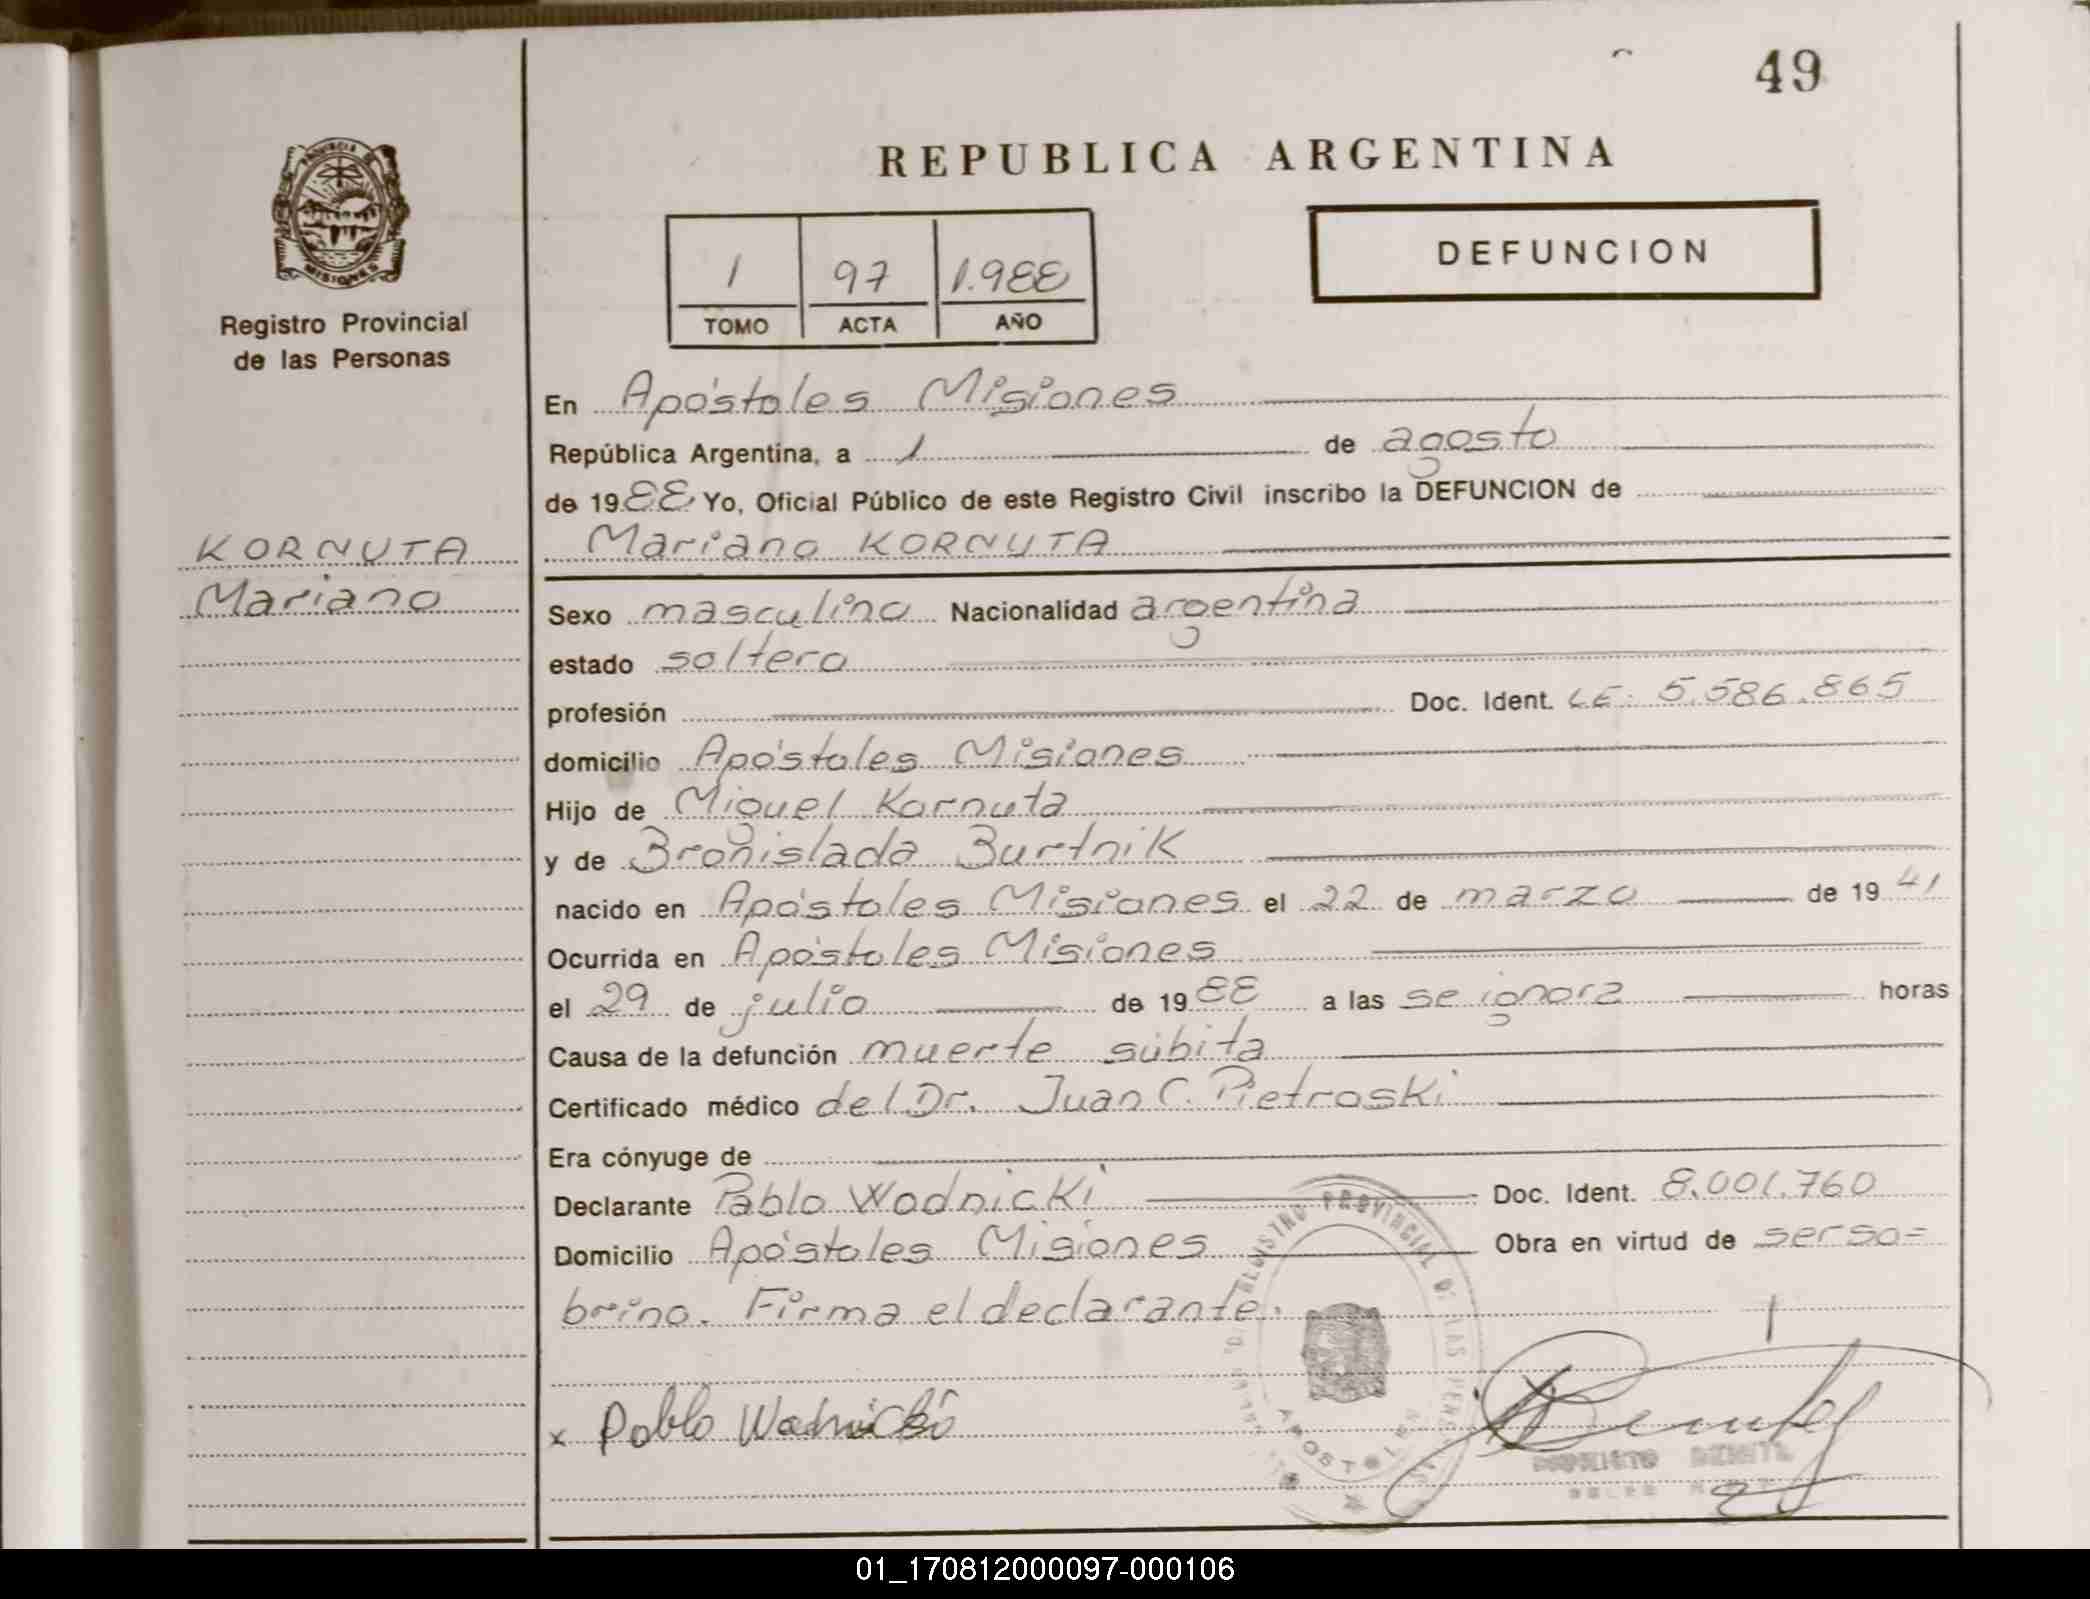 49
REPUBLICA ARGENTINA
PROVINCIA DE
MISIONES
Registro Provincial
de las Personas
1 97 1.988
TOMO ACTA AÑO
DEFUNCION
En Apóstoles Misiones
República Argentina, a 1 de agosto
de 1988 Yo, Oficial Público de este Registro Civil inscribo la DEFUNCION de
KORNUTA Mariano KORNUTA
Mariano
Sexo masculino Nacionalidad argentina
estado soltero
profesión Doc. Ident. LE: 5.586.865
domicilio Apóstoles Misiones
Hijo de Miguel Kornuta
y de Bronislada Burtnik
nacido en Apóstoles Misiones el 22 de marzo de 1941
Ocurrida en Apóstoles Misiones
el 29 de julio de 1988 a las se ignora horas
Causa de la defunción muerte súbita
Certificado médico del Dr. Juan C. Pietroski
Era cónyuge de
Declarante Pablo Wodnicki Doc. Ident. 8.001.760
Domicilio Apóstoles Misiones Obra en virtud de ser so=
brino. Firma el declarante.
REGISTRO PROVINCIAL DE LAS PERS
APOSTOLES
x Pablo Wodnicki
01_170812000097-000106